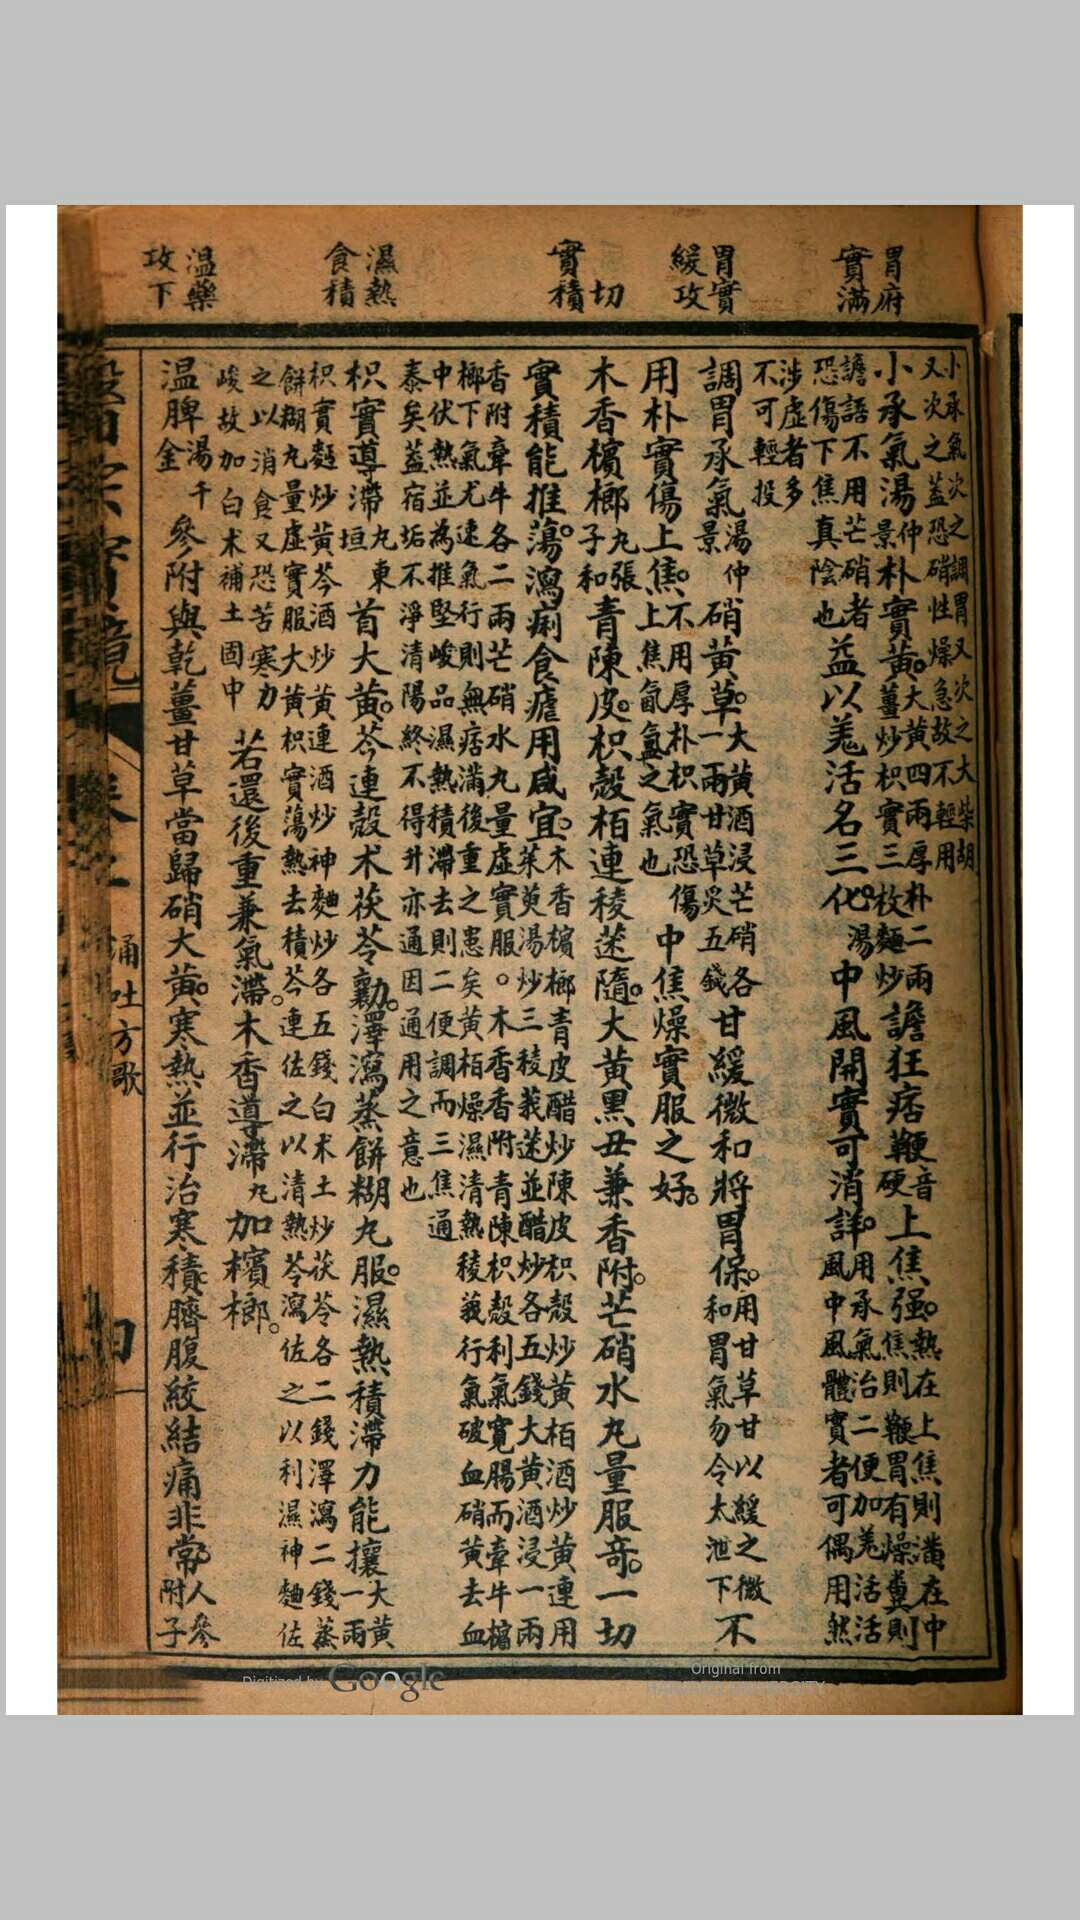 胃府實滿
胃實緩攻
一切實積
濕熱食積
温藥攻下
小承氣次之調胃又次之大柴胡
又次之蓋恐硝性燥急故不輕用
小承氣湯仲景朴實黃大黃四兩厚朴二兩薑炒枳實三枚麵炒譫狂痞鞕音硬上焦强熱在上焦則滿在中焦則鞕胃有燥糞則
譫語不用芒硝者恐傷下焦真陰也益以羗活名三化湯中風開實可消詳用承氣治二便加羗活治風中風體實者可偶用然
涉虛者多不可輕投
調胃承氣湯仲景硝黃草大黃酒浸芒硝各一兩甘草炙五錢甘緩微和將胃保用甘草甘以緩之微和胃氣勿令太泄下不
用朴實傷上焦不用厚朴枳實恐傷上焦氤氳之氣也中焦燥實服之好
木香檳榔丸張子和青陳皮枳殼栢連稜莁隨大黃黑丑兼香附芒硝水丸量服竒一切
實積能推蕩瀉痢食瘧用咸宜木香檳榔青皮醋炒陳皮枳殼炒黃栢酒炒黃連用茱萸湯炒三稜莪莁並醋炒各五錢大黃酒浸一兩
香附牽牛各二兩芒硝水丸量虛實服。木香香附青陳枳殼利氣寬腸而牽牛檳
榔下氣尤速氣行則無痞滿後重之患矣黃栢燥濕清熱稜莪行氣破血硝黃去血
中伏熱並為推堅峻品濕熱積滯去則二便調而三焦通
泰矣蓋宿垢不淨清陽終不得升亦通因通用之意也
枳實導滯丸東垣首大黃芩連殼术茯苓勷澤瀉蒸餅糊丸服濕熱積滯力能攘大黃一兩
枳實麵炒黃芩酒炒黃連酒炒神麯炒各五錢白术土炒茯苓各二錢澤瀉二錢蒸
餅糊丸量虛實服大黃枳實蕩熱去積芩連佐之以清熱苓瀉佐之以利濕神麯佐
之以消食又恐苦寒力峻故加白术補土固中若還後重兼氣滯木香導滯丸加檳榔
温脾湯千金參附與乾薑甘草當歸硝大黃寒熱並行治寒積臍腹絞結痛非常人參附子
涌吐方歌